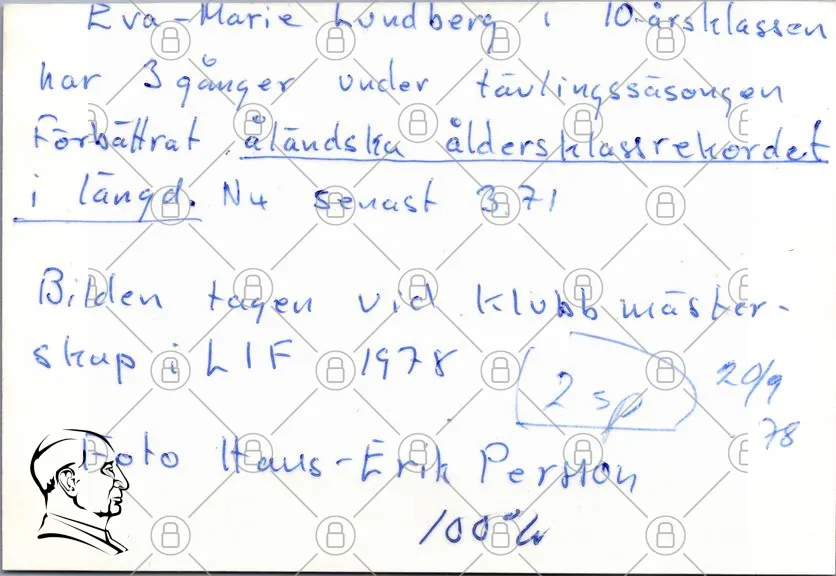 Eva-Marie Lundberg i 10-årsklassen
har 3 gånger under tävlingssäsongen
Förbättrat åländska åldersklassrekordet
i längd. Nu senast 3.71
Bilden tagen vid klubbmäster-
skap i LIF 1978
2 sp
20/9
78
Foto Hans-Erik Persson
100%